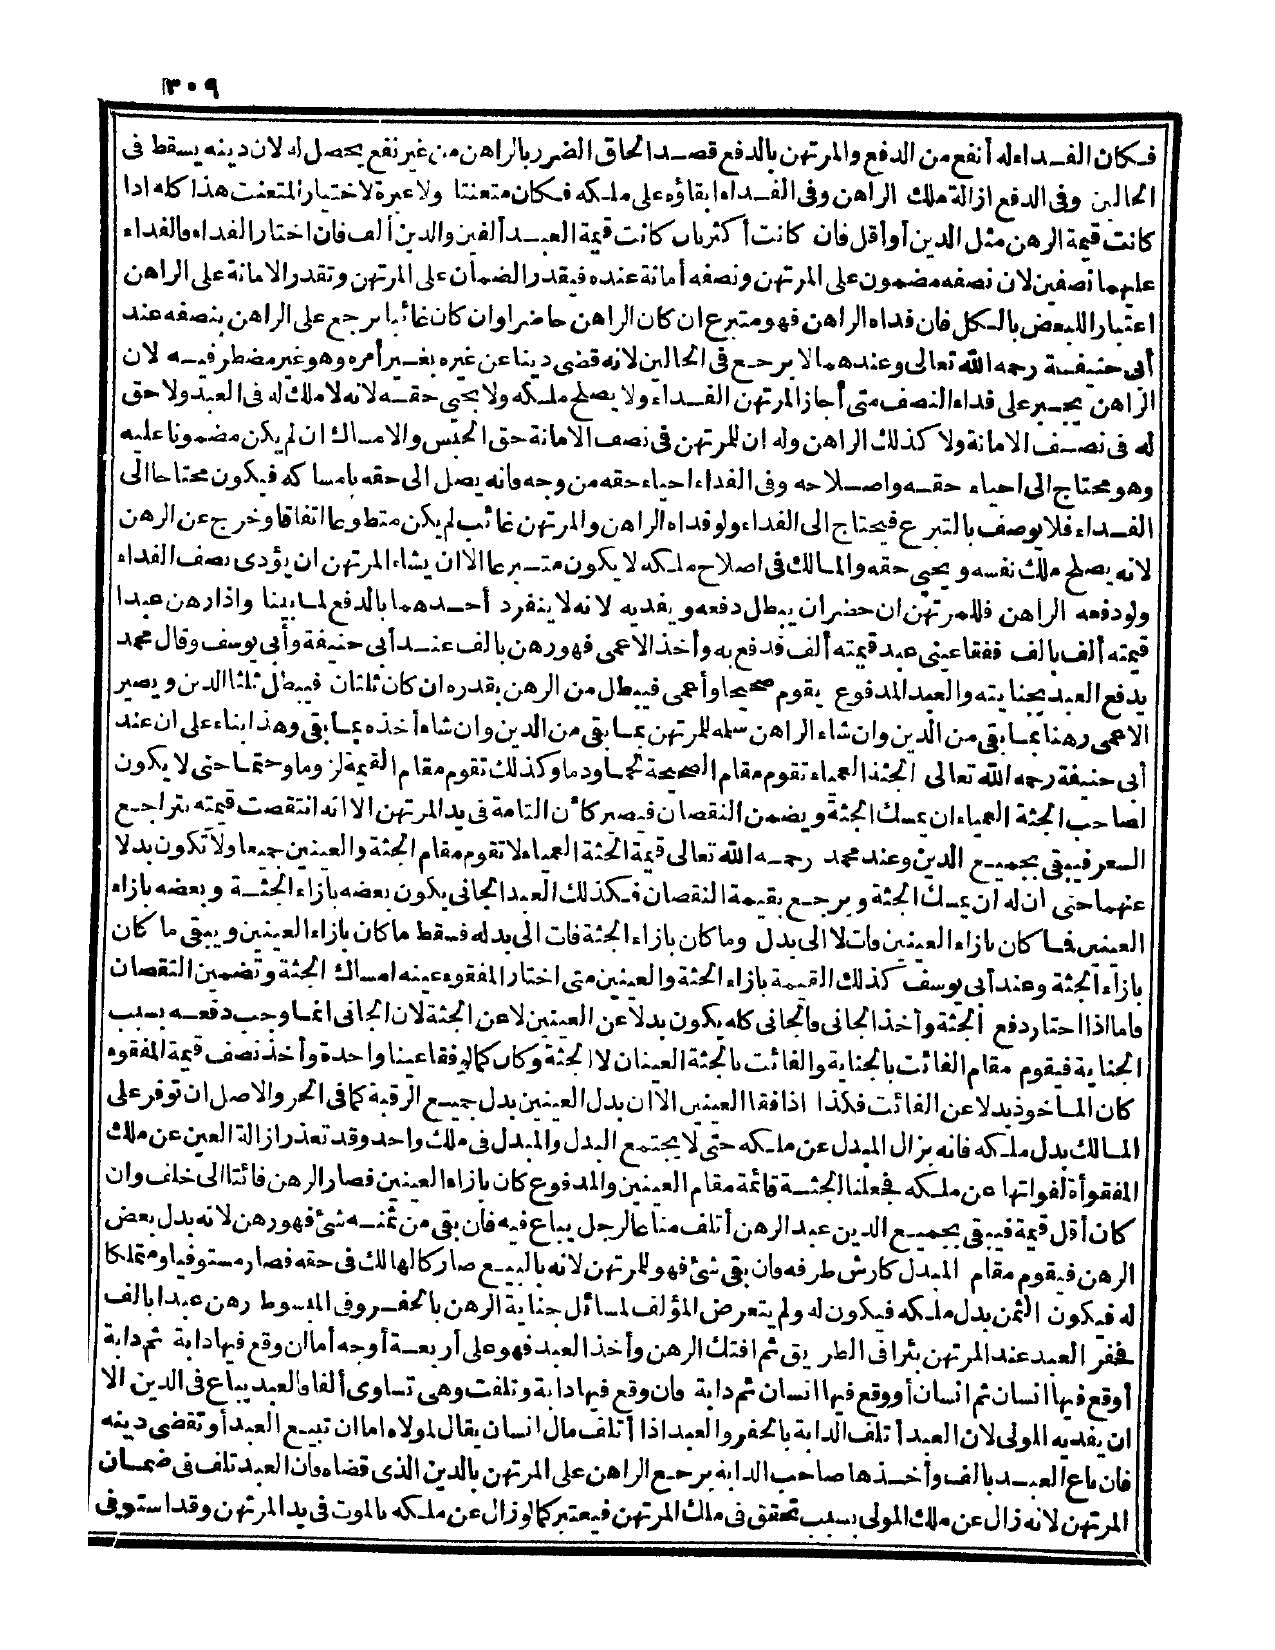 ٣٠٩
فكان الفداء له أنفع من الدفع والمرتهن بالدفع قصد الحاق الضرر بالراهن من غير نفع يحصل له لان دينه يسقط فى
الحالين وفى الدفع ازالة ملك الراهن وفى الفداء ابقاؤه على ملكه فكان متعنتا ولا عبرة لاختيار المتعنت هذا كله اذا
كانت قيمة الرهن مثل الدين أو أقل فان كانت أكثر بان كانت قيمة العبد ألفين والدين ألف فان اختارا الفداء فالفداء
عليهما نصفين لان نصفه مضمون على المرتهن ونصفه أمانة عنده فيقدر الضمان على المرتهن وتقدر الامانة على الراهن
اعتبارا للبعض بالكل فان فداه الراهن فهو متبرع ان كان الراهن حاضرا وان كان غائبا يرجع على الراهن بنصفه عند
أبى حنيفة رحمه الله تعالى وعندهما لا يرجع فى الحالين لانه قضى دينا عن غيره بغير أمره وهو غير مضطر فيه لان
الراهن يجبر على فداء النصف متى أجاز المرتهن الفداء ولا يصلح ملكه ولا يحيى حقه لانه لا ملك له فى العبد ولا حق
له فى نصف الامانة ولا كذلك الراهن وله ان للمرتهن فى نصف الامانة حق الحبس والامساك ان لم يكن مضمونا عليه
وهو محتاج الى احياء حقه واصلاحه وفى الفداء احياء حقه من وجه فانه يصل الى حقه بامساكه فيكون محتاجا الى
الفداء فلا يوصف بالتبرع فيحتاج الى الفداء ولو فداه الراهن والمرتهن غائب لم يكن متطوعا اتفاقا وخرج عن الرهن
لانه يصلح ملك نفسه ويحيى حقه والمالك فى اصلاح ملكه لا يكون متبرعا الا ان يشاء المرتهن ان يؤدى نصف الفداء
ولو دفعه الراهن فللمرتهن ان حضر ان يبطل دفعه ويفديه لانه لا ينفرد أحدهما بالدفع لما بينا واذا رهن عبدا
قيمته ألف بالف ففقأ عينى عبد قيمته ألف فدفع به وأخذ الاعمى فهو رهن بالف عند أبى حنيفة وأبى يوسف وقال محمد
يدفع العبد بجنايته والعبد المدفوع يقوم صحيحا وأعمى فيبطل من الرهن بقدره ان كان ثلثان فيبطل ثلثا الدين ويصير
الاعمى رهنا بما بقى من الدين وان شاء الراهن سلمه للمرتهن بما بقى من الدين وان شاء أخذه بما بقى وهذا بناء على ان عند
أبى حنيفة رحمه الله تعالى الجثة العمياء تقوم مقام الصحيحة لحما ودما وكذلك تقوم مقام القيمة لزوما وحتما حتى لا يكون
لصاحب الجثة العمياء ان يمسك الجثة ويضمن النقصان فيصير كأن التامة فى يد المرتهن الا انه انتقصت قيمته بتراجع
السعر فيبقى بجميع الدين وعند محمد رحمه الله تعالى قيمة الجثة العمياء لا تقوم مقام الجثة والعينين جميعا ولا تكون بدلا
عنهما حتى ان له ان يمسك الجثة ويرجع بقيمة النقصان فكذلك العبد الجانى يكون بعضه بازاء الجثة وبعضه بازاء
العينين فما كان بازاء العينين فات لا الى بدل وما كان بازاء الجثة فات الى بدله فسقط ما كان بازاء العينين ويبقى ما كان
بازاء الجثة وعند أبى يوسف كذلك القيمة بازاء الجثة والعينين متى اختار المفقوء عينه امساك الجثة وتضمين النقصان
فاما اذا اختار دفع الجثة وأخذ الجانى فالجانى كله يكون بدلا عن العينين لا عن الجثة لان الجانى انما وجب دفعه بسبب
الجناية فيقوم مقام الفائت بالجناية والفائت بالجثة العينان لا الجثة وكان كما لو فقأ عينا واحدة وأخذ نصف قيمة المفقوء
كان المأخوذ بدلا عن الفائت فكذا اذا فقأ العينين الا ان بدل العينين بدل جميع الرقبة كما فى الحر والاصل ان توفر على
المالك بدل ملكه فانه يزال المبدل عن ملكه حتى لا يجتمع البدل والمبدل فى ملك واحد وقد تعذر ازالة العين عن ملك
المفقوأة لفواتها عن ملكه فجعلنا الجثة قائمة مقام العينين والمدفوع كان بازاء العينين فصار الرهن فائتا الى خلف وان
كان أقل قيمة فيبقى بجميع الدين عبد الرهن أتلف متاعا لرجل يباع فيه فان بقى من ثمنه شئ فهو رهن لانه بدل بعض
الرهن فيقوم مقام المبدل كارش طرفه فان بقى شئ فهو للمرتهن لانه بالبيع صار كالهالك فى حقه فصار مستوفيا ومتملكا
له فيكون الثمن بدل ملكه فيكون له ولم يتعرض المؤلف لمسائل جناية الرهن بالحفر وفى المبسوط رهن عبدا بالف
فحفر العبد عند المرتهن بئرا فى الطريق ثم افتك الرهن وأخذ العبد فهو على أربعة أوجه أما ان وقع فيها دابة ثم دابة
أو وقع فيها انسان ثم انسان أو وقع فيها انسان ثم دابة فان وقع فيها دابة وتلفت وهى تساوى ألفا فالعبد يباع فى الدين الا
ان يفديه المولى لان العبد أتلف الدابة بالحفر والعبد اذا أتلف مال انسان يقال لمولاه اما ان تبيع العبد أو تقضى دينه
فان باع العبد بالف وأخذها صاحب الدابة يرجع الراهن على المرتهن بالدين الذى قضاه فان العبد تلف فى ضمان
المرتهن لانه زال عن ملك المولى بسبب تحقق فى ملك المرتهن فيعتبر كما لو زال عن ملكه بالموت فى يد المرتهن وقد استوفى